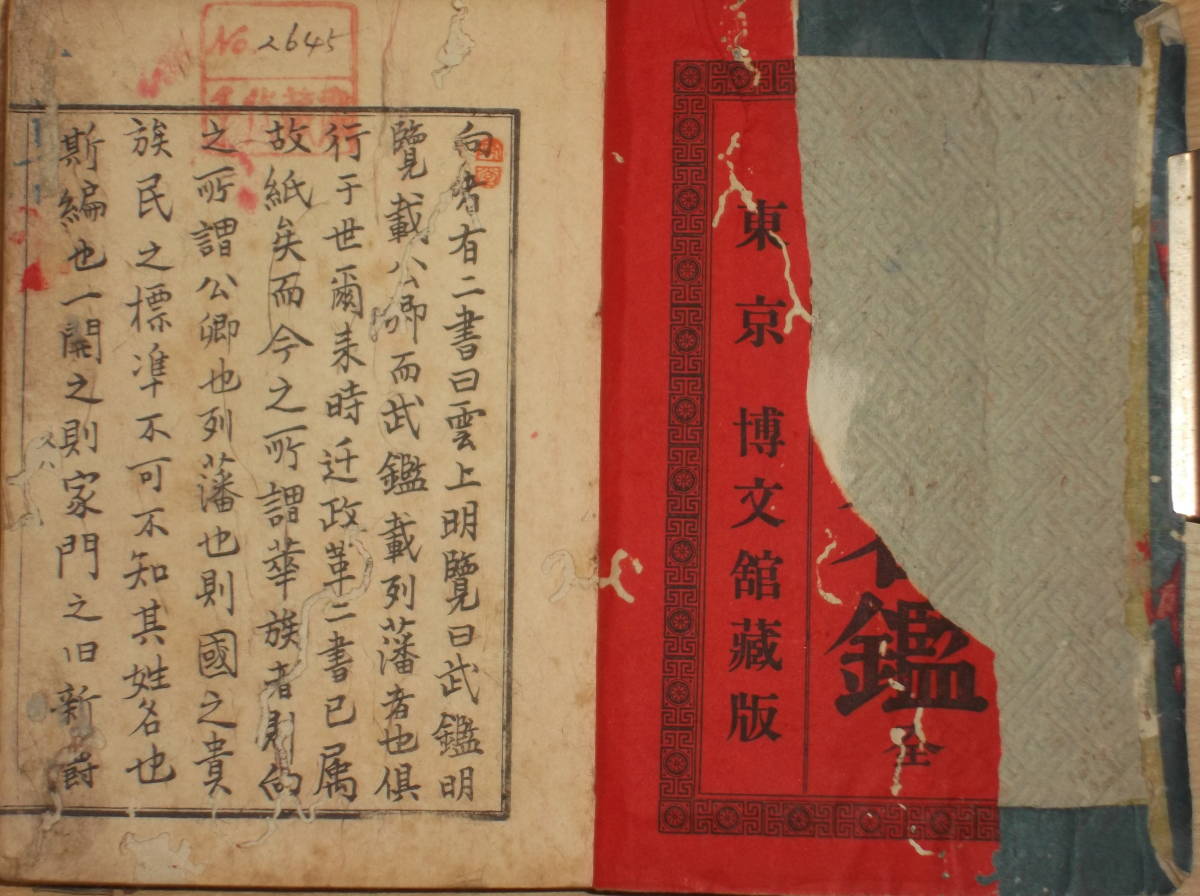 名鑑
全
東京 博文館藏版
No. 2645
向者有二書曰雲上明覽曰武鑑明
覽載公卿而武鑑載列藩者也俱
行于世爾来時迁政革二書已属
故紙矣而今之所謂華族者則向
之所謂公卿也列藩也則國之貴
族民之標準不可不知其姓名也
斯編也一開之則家門之旧新爵